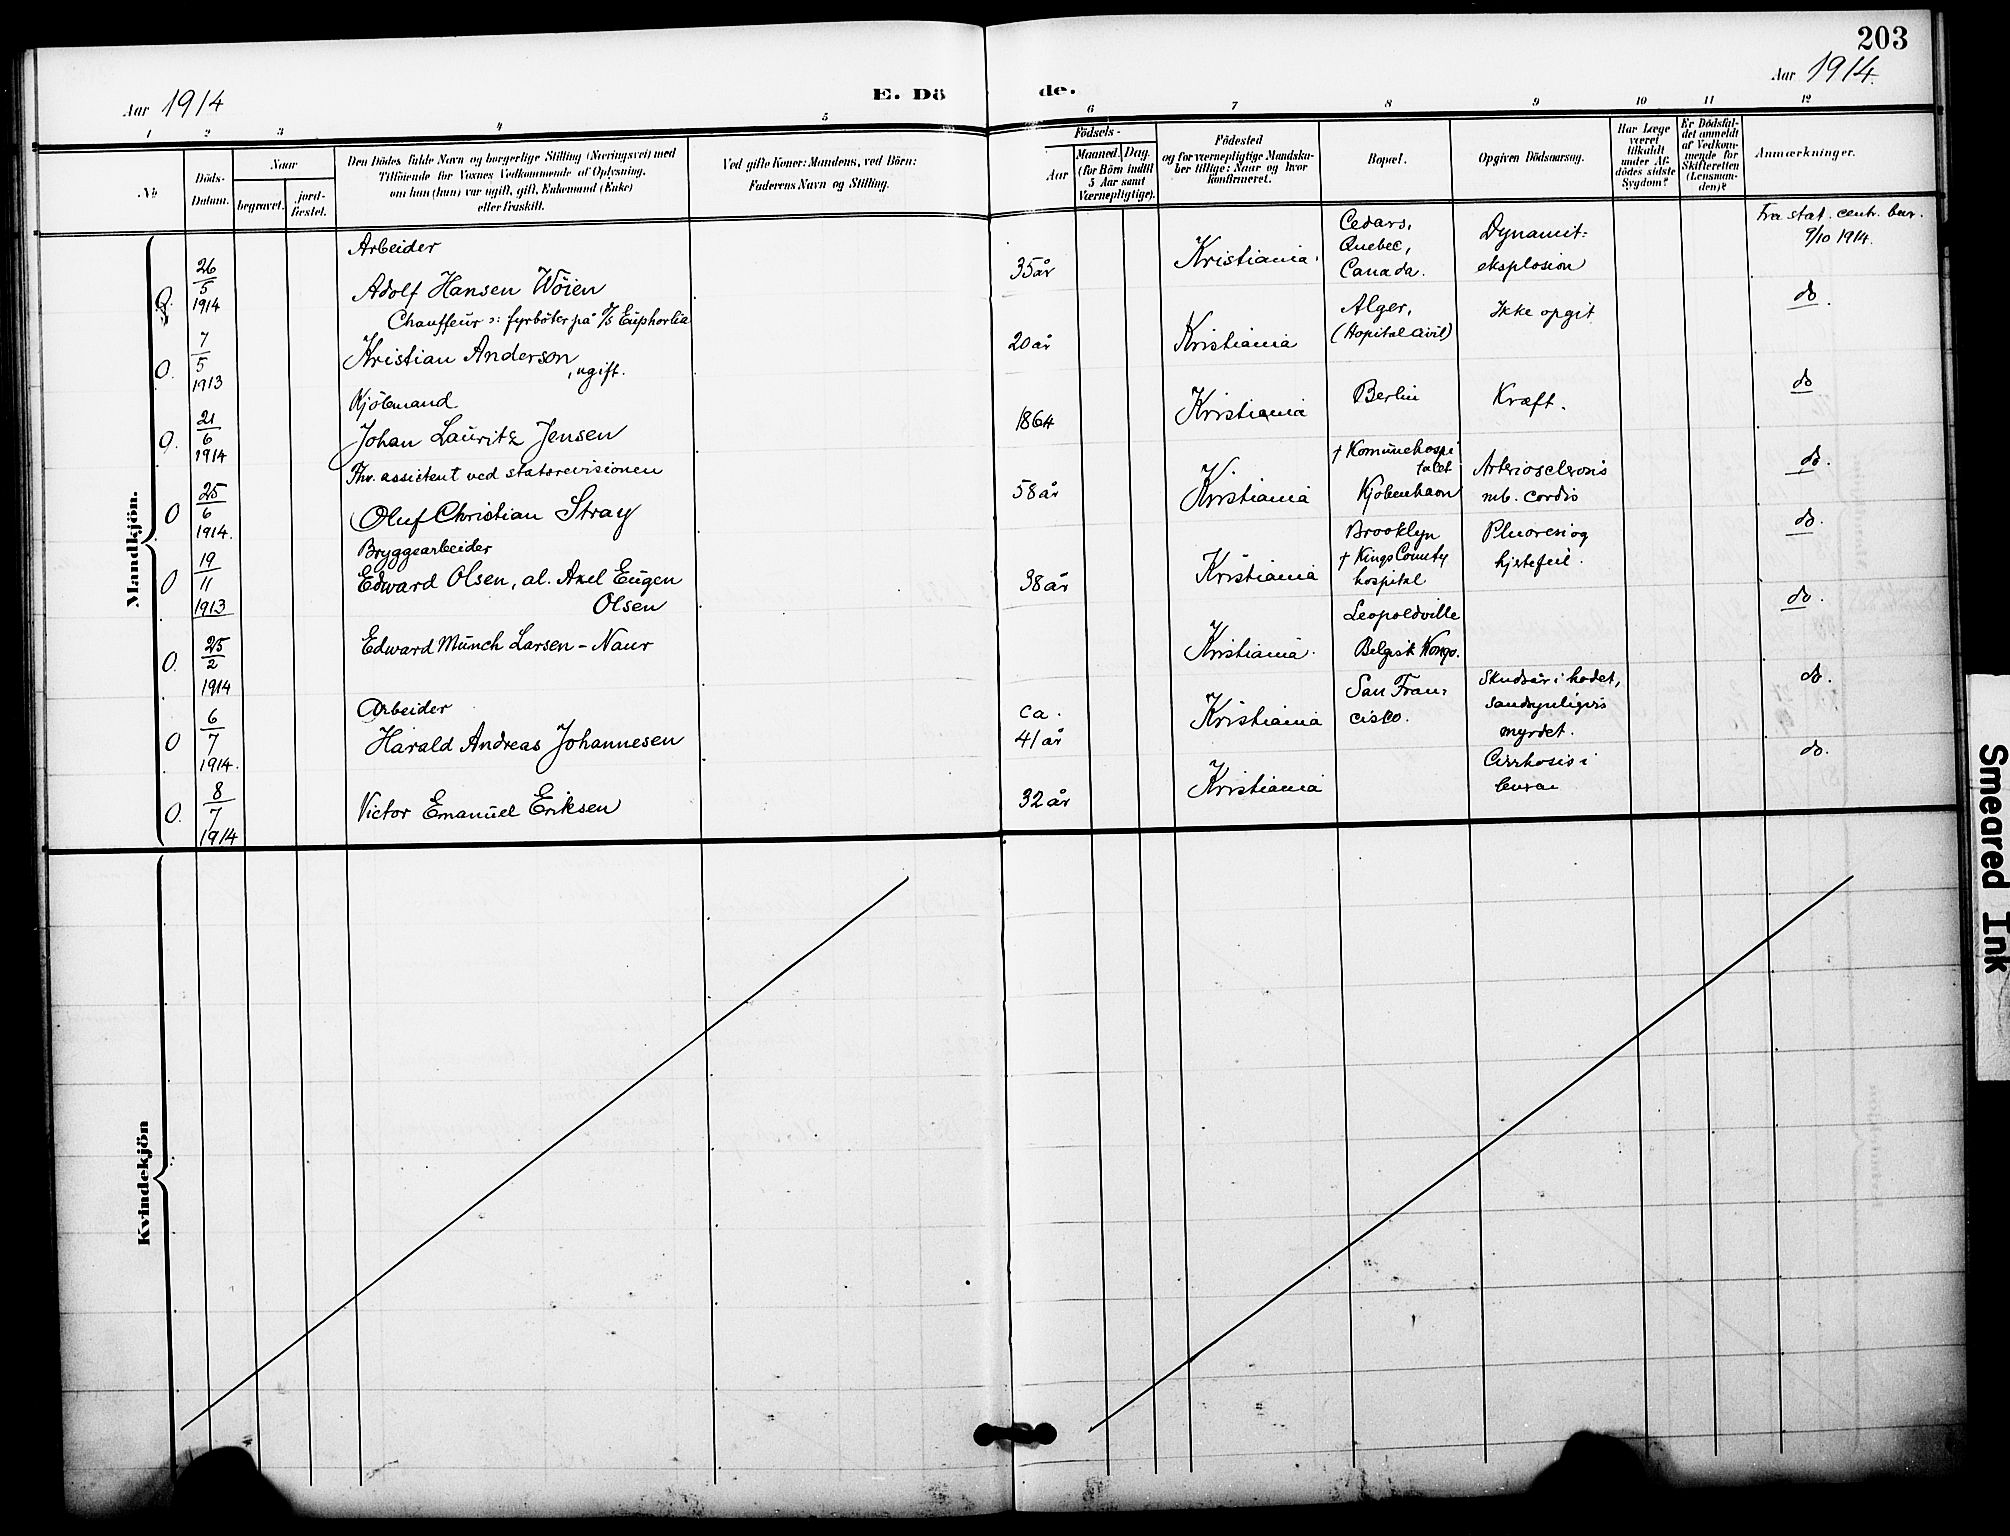 203
Aar 1914
E. Dö
de.
Aar 1914.
1 2 3 4 5 6 7 8 9 10 11 12
No
Döds-
Datum.
Naar
begravet.
jord-
fæstet.
Den Dödes fulde Navn og borgerlige Stilling (Næringsvei) med
Tilföiende for Voxnes Vedkommende af Oplysning,
om han (hun) var ugift, gift, Enkemand (Enke)
eller fraskilt.
Ved gifte Koner: Mandens, ved Börn:
Faderens Navn og Stilling.
Födsels-
Aar
Maaned.
Dag.
(for Börn indtil
5 Aar samt
Værnepligtige).
Födested
og for værnepligtige Mandskaber
tillige: Naar og hvor
konfirmeret.
Bopæl.
Opgiven Dödsaarsag.
Har Læge
været
tilkaldt
under Af-
dödes sidste
Sygdom?
Er Dödsfal-
det anmeldt
af Vedkom-
mende for
Skifteretten
(Lensman-
den)?
Anmærkninger.
Mandkjön.
26/5 1914
Arbeider
Adolf Hansen Wöien
35 år
Kristiania.
Cedars,
Quebec,
Canada.
Dynamit-
eksplosion
Fra stat. centr. bur.
9/10 1914.
O. 7/5 1913
Chauffeur ɔ: fyrböter på S/S Euphorlia
Kristian Anderson, ugift.
20 år
Kristiania
Alger,
(Hopital civil)
Ikke opgit
do.
O. 21/6 1914
Kjöbmand
Johan Lauritz Jensen
1864
Kristiania
Berlin
Kræft.
do
O 25/6 1914.
Fhv. assistent ved statsrevisionen
Oluf Christian Stray
58 år
Kristiania
† Komunehospi
talet
Kjöbenhavn
Arteriosclerosis
mb. cordis
do.
O 19/11 1913
Bryggearbeider
Edward Olsen, al. Axel Eugen
Olsen
38 år
Kristiania
Brooklyn
† Kings County
hospital
Pluoresi og
hjertefeil.
do.
O. 25/2 1914
Edward Munch Larsen - Naur
Kristiania.
Leopoldville
Belgisk Kongo.
do.
O 6/7 1914.
Arbeider
Harald Andreas Johannesen
ca.
41 år
Kristiania
San Fran-
cisko.
Skudsår i hodet,
sandsynligvis
myrdet.
do.
O. 8/7 1914
Victor Emanuel Eriksen
32 år
Kristiania
Cirrhosis i
leveren
do.
Kvindekjön
Smeared Ink